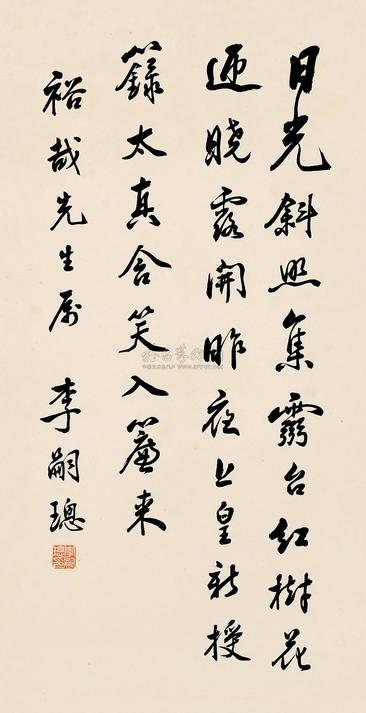 日光斜照集靈台紅樹花
迎曉露開昨夜上皇新授
籙太真含笑入簾来
裕哉先生属 李嗣璁